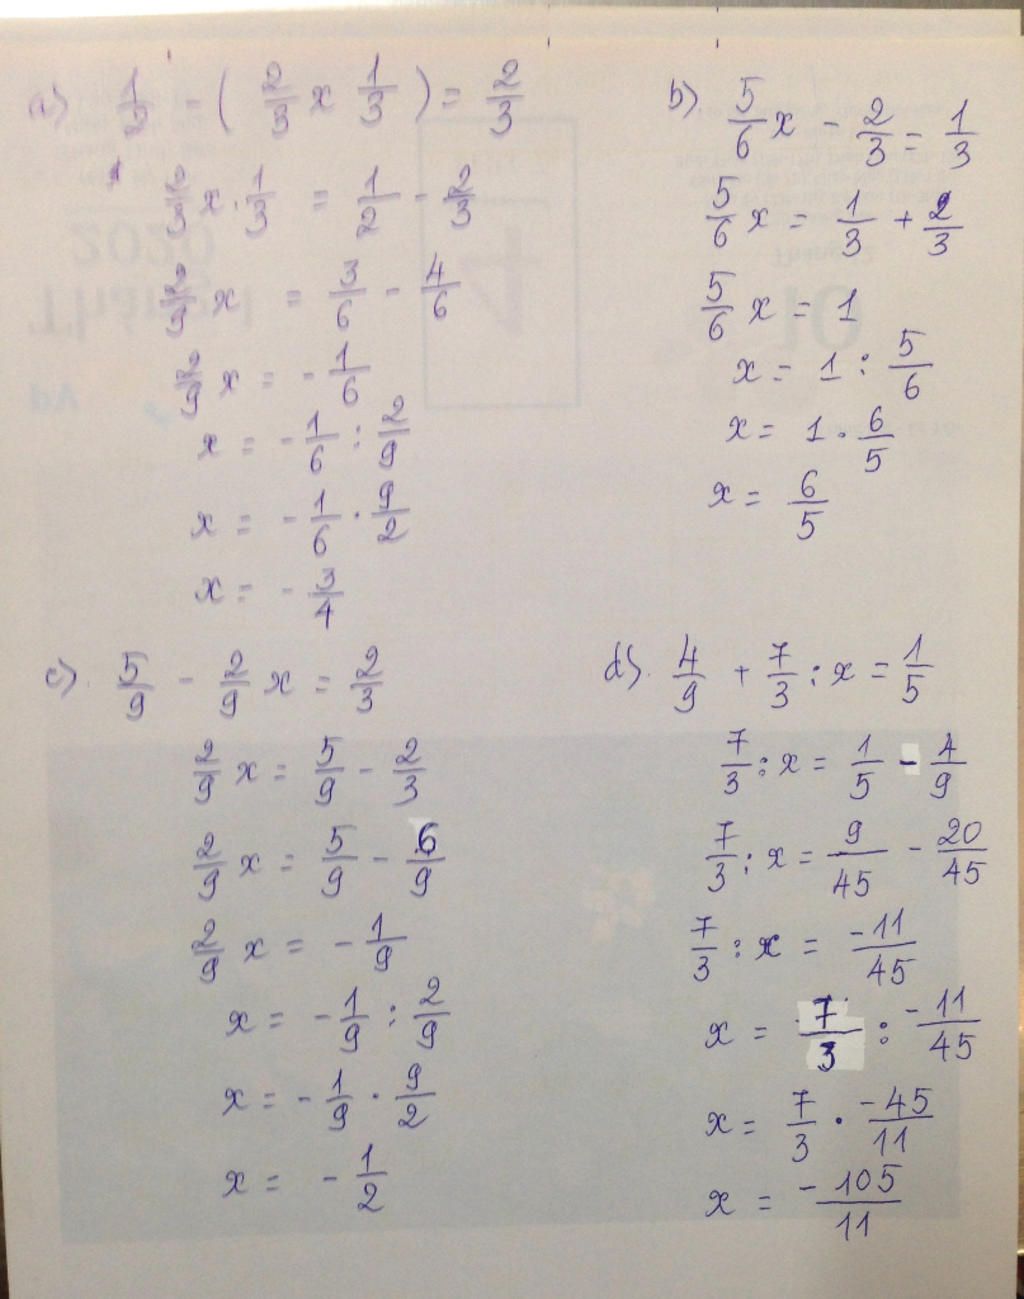 a) 1/2 - ( 2/3 x 1/3 ) = 2/3
2/3 x . 1/3 = 1/2 - 2/3
2/9 x = 3/6 - 4/6
2/9 x = - 1/6
x = - 1/6 : 2/9
x = - 1/6 . 9/2
x = - 3/4
b) 5/6 x - 2/3 = 1/3
5/6 x = 1/3 + 2/3
5/6 x = 1
x = 1 : 5/6
x = 1 . 6/5
x = 6/5
c) 5/9 - 2/9 x = 2/3
2/9 x = 5/9 - 2/3
2/9 x = 5/9 - 6/9
2/9 x = - 1/9
x = - 1/9 : 2/9
x = - 1/9 . 9/2
x = - 1/2
d) 4/9 + 7/3 : x = 1/5
7/3 : x = 1/5 - 4/9
7/3 : x = 9/45 - 20/45
7/3 : x = -11/45
x = 7/3 : -11/45
x = 7/3 . -45/11
x = -105/11